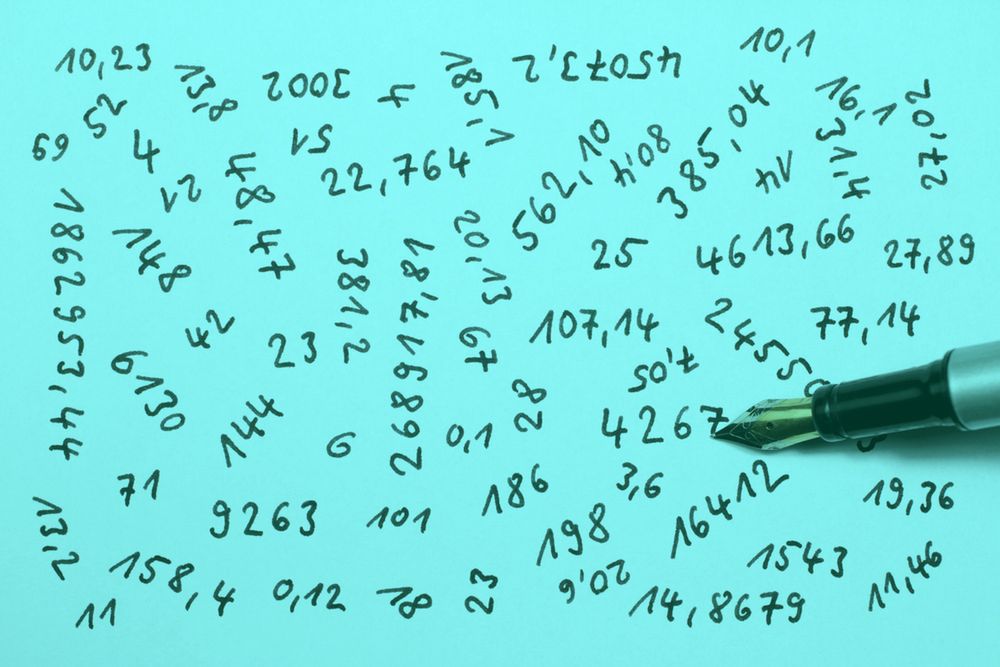 10,23
13,8
3002
4
45073,2
10,1
52
4
51
22,764
562,10
80,4
385,04
16,1
27,02
21
48,47
14
31,4
1862953,44
148
381,2
268917,81
20,13
25
4613,66
27,89
42
23
67
107,14
77,14
6130
144
6
0,1
28
7,05
4267
71
9263
101
186
3,6
16412
19,36
13,2
158,4
0,12
18
23
198
20,6
1543
11,46
11
14,8679